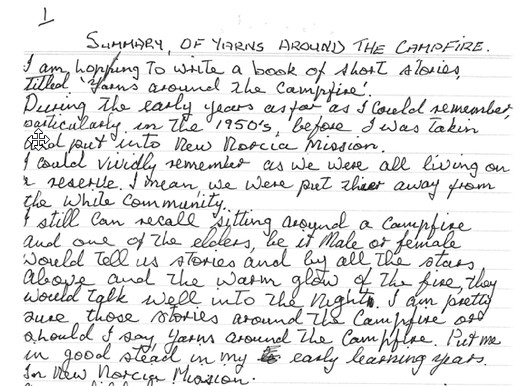 1
SUMMARY, OF YARNS AROUND THE CAMPFIRE.
I am hopping to write a book of short stories,
titled 'Yarns around the Campfire'.
During the early years as far as I could remember,
particularly in the 1950's, before I was taken
and put into New Norcia Mission.
I could vividly remember as we were all living on
a reserve. I mean we were put away from
the White Community.
I still can recall sitting around a campfire
and one of the elders, be it Male or female
would tell us stories and by all the stars
above and the warm glow of the fire, they
would talk well into the Night. I am pretty
sure those stories around the Campfire or
should I say Yarns around the Campfire. Put me
in good stead in my early learning years.
In New Norcia Mission.